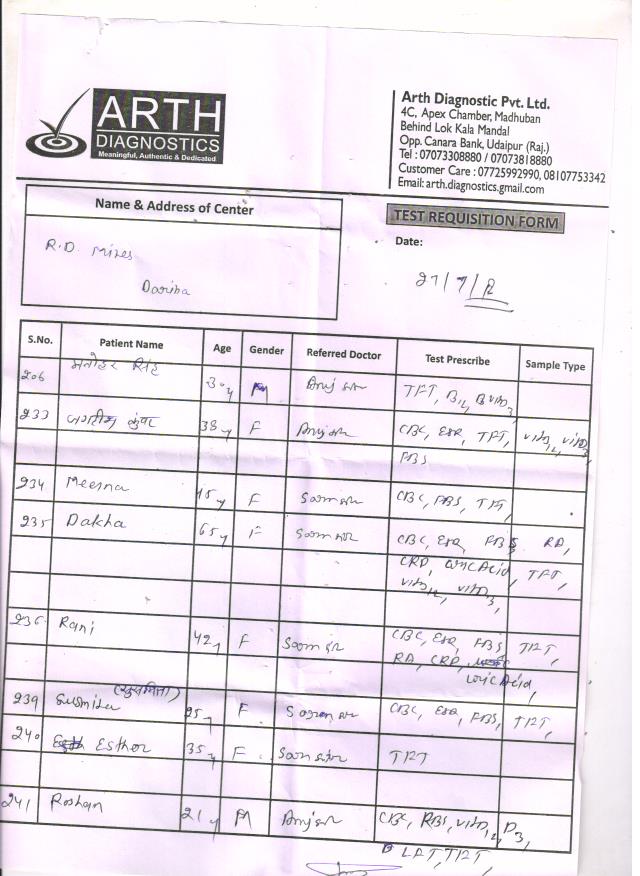 ARTH
DIAGNOSTICS
Meaningful, Authentic & Dedicated
Arth Diagnostic Pvt. Ltd.
4C, Apex Chamber, Madhuban
Behind Lok Kala Mandal
Opp. Canara Bank, Udaipur (Raj.)
Tel : 07073308880 / 07073818880
Customer Care : 07725992990, 08107753342
Email: arth.diagnostics.gmail.com
Name & Address of Center
TEST REQUISITION FORM
Date:
R.D. Mines
Dariba
27/7/
S.No. Patient Name Age Gender Referred Doctor Test Prescribe Sample Type
206 मनोहर सिंह 30y M TFT, B12,
233 38y F CBC, ESR, TFT, vitB12, vitD3,
RBS
234 Meena 15y F CBC, RBS, TFT,
235 Dakha 65y F CBC, ESR, RBS RA,
CRP, uric Acid, TFT,
vitB12, vitD3,
236 Rani 42y F CBC, ESR, RBS, TFT,
RA, CRP,
uric Acid,
239 Susmita (सुसमिता) 25y F CBC, ESR, RBS, TFT,
240 Esther 35y F TFT
241 Roshan 21y M CBC, RBS, vitB12, D3,
LFT, TFT,